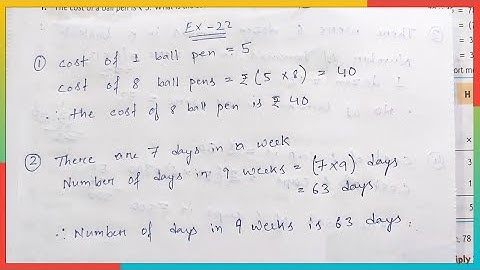 Ex-22
① Cost of 1 ball pen = 5
Cost of 8 ball pens = ₹ (5 × 8) = 40
∴ the cost of 8 ball pen is ₹ 40
② There are 7 days in a week
Number of days in 9 weeks = (7×9) days.
= 63 days
∴ Number of days in 9 weeks is 63 days.